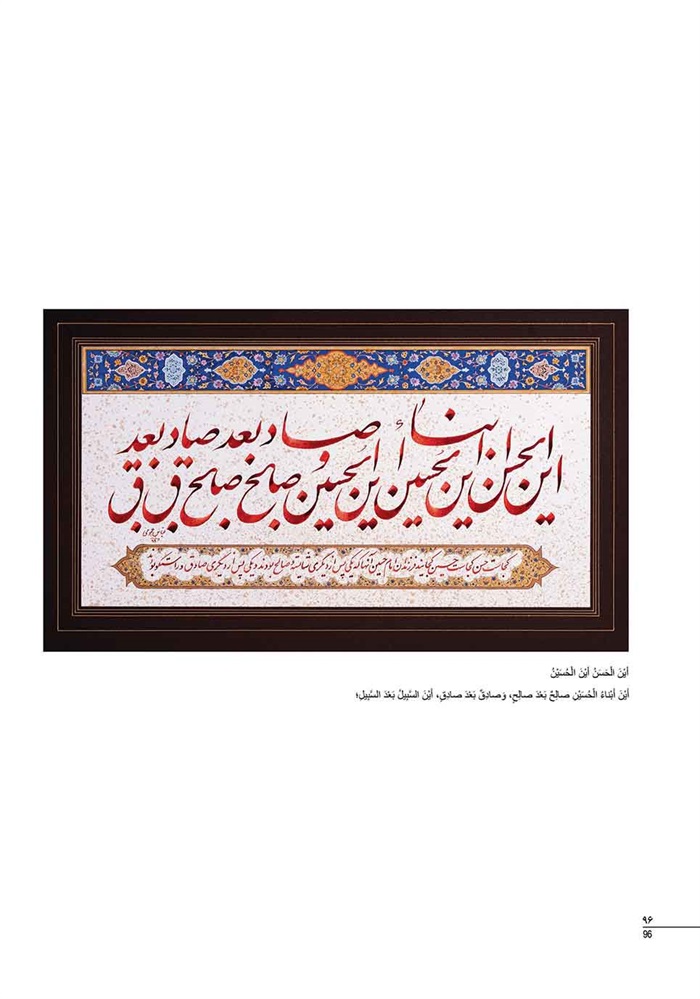 این الحسن این الحسین أین ابناء الحسین صالح بعد صالح و صادق بعد صادق
کجاست حسن کجاست حسین کجایند فرزندان امام حسین آنها که یکی پس از دیگری شایسته و صالح بودند و یکی پس از دیگری صادق و راستگو بودند
أیْنَ الْحَسَنُ أیْنَ الْحُسَیْنُ
أیْنَ أبْناءُ الْحُسَیْنِ صالِحٌ بَعْدَ صالِحٍ، وَصادِقٌ بَعْدَ صادِقٍ، أیْنَ السَّبِیلُ بَعْدَ السَّبِیلِ؛
۹۶
96